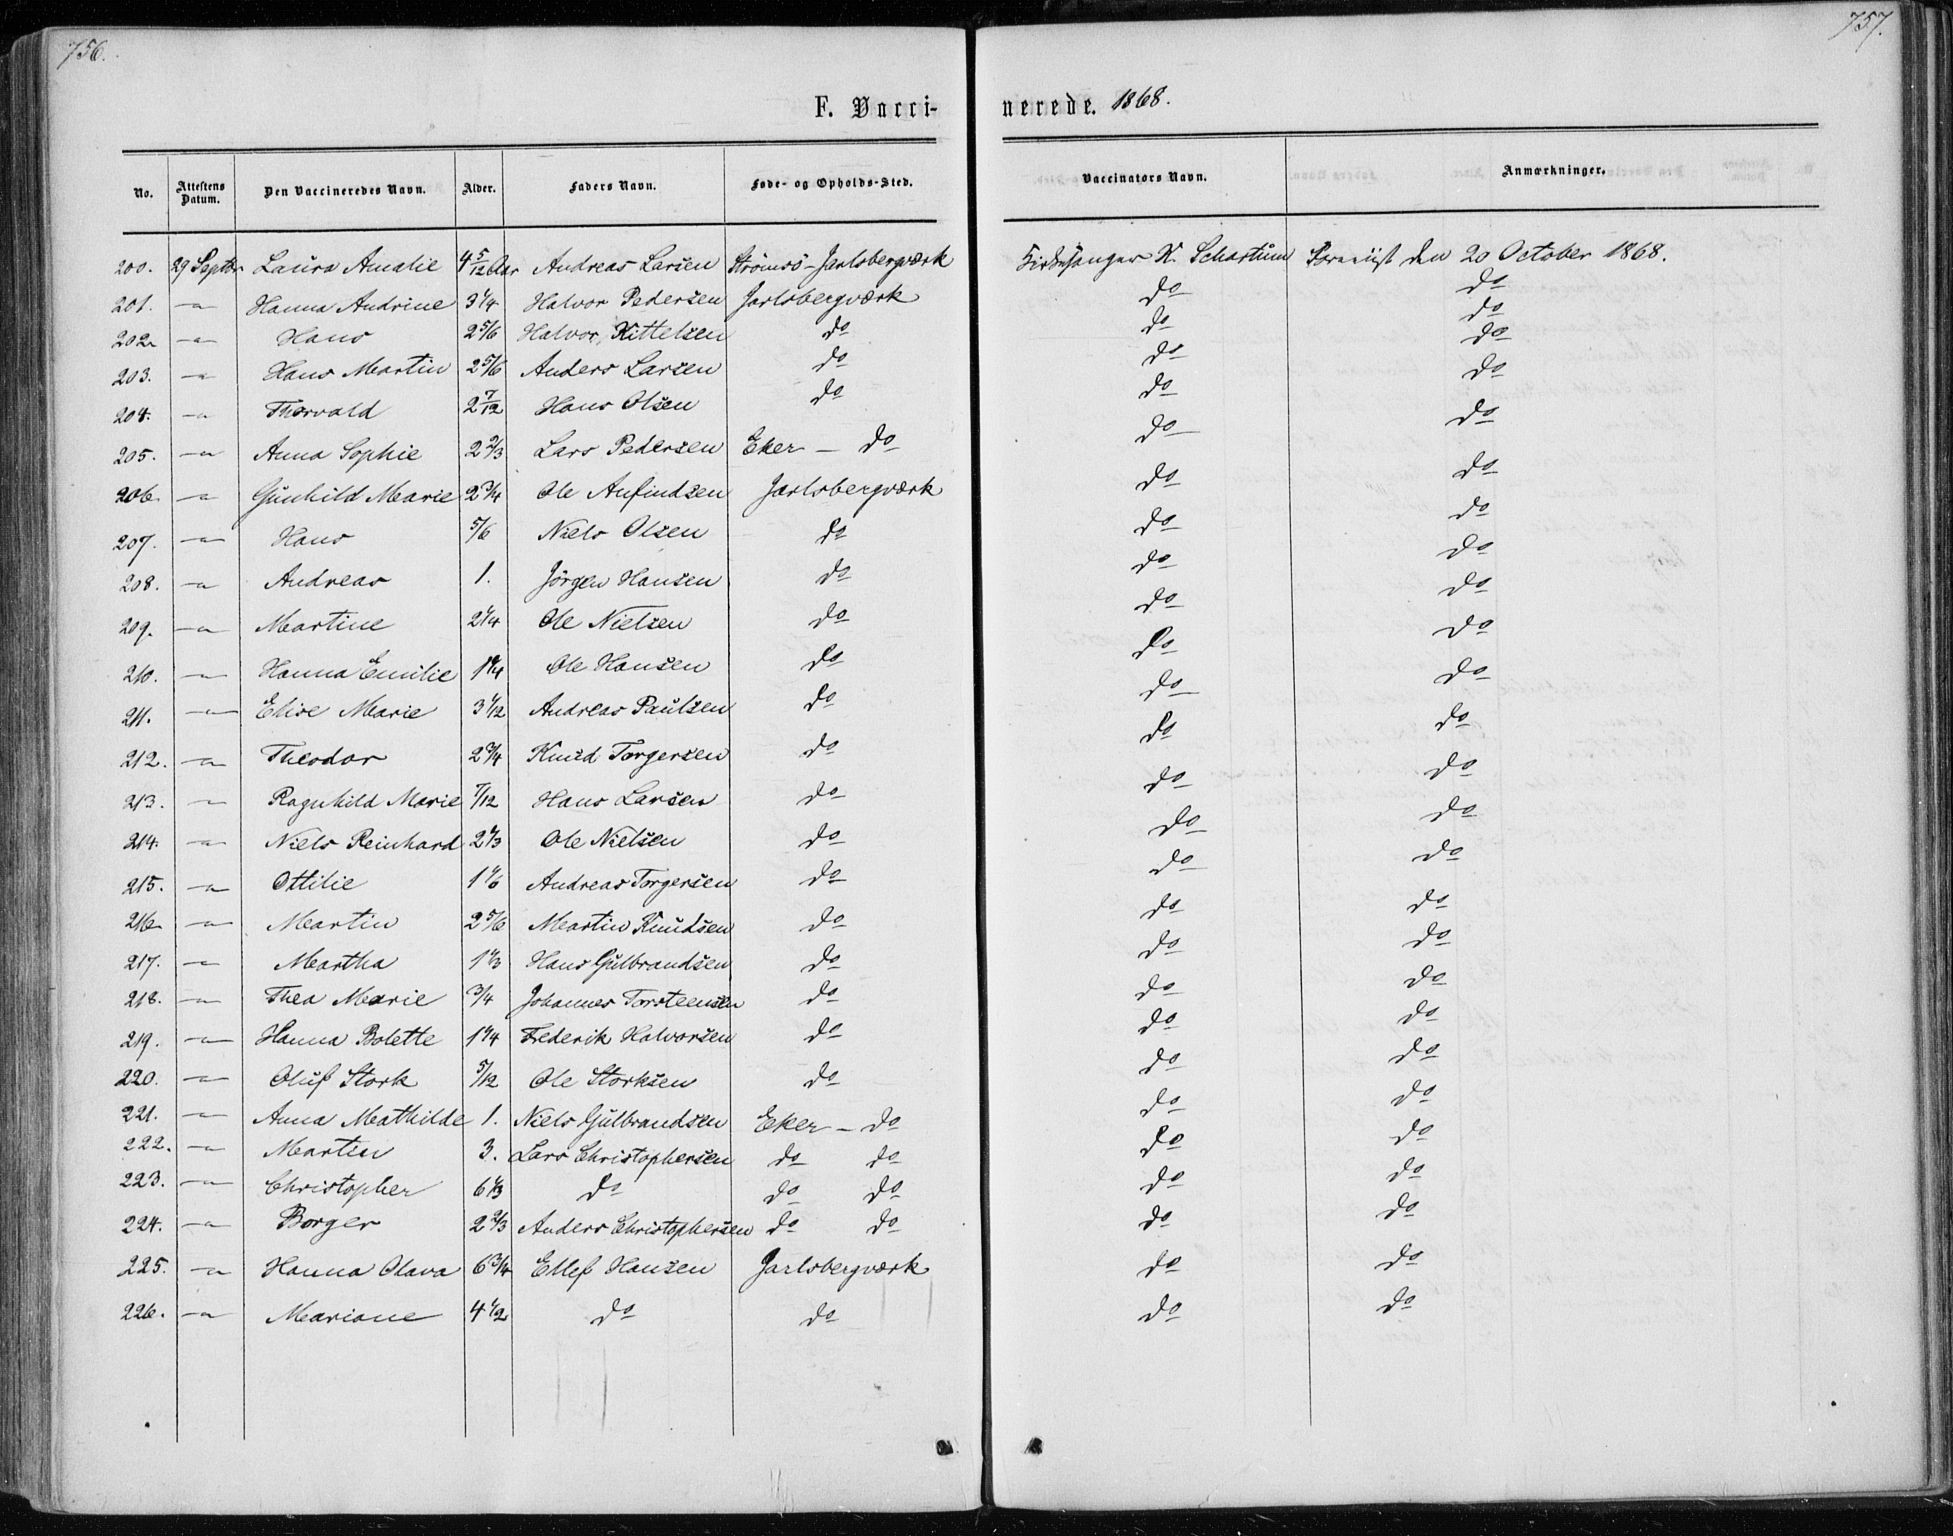 756.
757.
F. Vacci-
nerede. 1868.
No. Attestens Datum. Den Vaccineredes Navn. Alder. Faders Navn. Føde- og Opholds-Sted. Vaccinators Navn. Anmærkninger.
200. 29 Septbr Laura Amalie 4 5/12 Aar Andreas Larsen Strømsö-Jarlsbergværk Kirkesanger K. Schartum den 20 October 1868.
201. —"— Hanna Andrine 3 1/4 Halvor Pedersen Jarlsbergværk do do
202. —"— Hans 2 5/6 Halvor Kittelsen do do do
203. —"— Hans Martin 2 5/6 Anders Larsen do do do
204. —"— Thorvald 2 7/12 Hans Olsen do do do
205. —"— Anna Sophie 2 2/3 Lars Pedersen Eker — do do do
206. —"— Gunhild Marie 2 3/4 Ole Anfindsen Jarlsbergværk do do
207. —"— Hans 5/6 Niels Olsen do do do
208. —"— Andreas 1. Jörgen Hansen do do do
209. —"— Martine 2 1/4 Ole Nielsen do do do
210. —"— Hanna Emilie 1 1/4 Ole Hansen do do do
211. —"— Elise Marie 3 1/12 Andreas Paulsen do do do
212. —"— Theodor 2 3/4 Knud Torgersen do do do
213. —"— Ragnhild Marie 7/12 Hans Larsen do do do
214. —"— Niels Reinhard 2 1/3 Ole Nielsen do do do
215. —"— Ottilie 1 1/6 Andreas Torgersen do do do
216. —"— Martin 2 5/6 Martin Knudsen do do do
217. —"— Martha 1 1/3 Hans Gulbrandsen do do do
218. —"— Thea Marie 3/4 Johannes Torsteensen do do do
219. —"— Hanna Bolette 1 1/4 Frederik Halvorsen do do do
220. —"— Oluf Stork 5/12 Ole Storksen do do do
221. —"— Anna Mathilde 1. Niels Gulbrandsen Eker — do do do
222. —"— Martin 3. Lars Christophersen do do do do
223. —"— Christopher 6 1/3 do do do do do
224. —"— Borger 2 2/3 Anders Christophersen do do do do
225. —"— Hanna Olava 6 3/4 Ellef Hansen Jarlsbergværk do do
226. —"— Mariane 4 1/2 do do do do